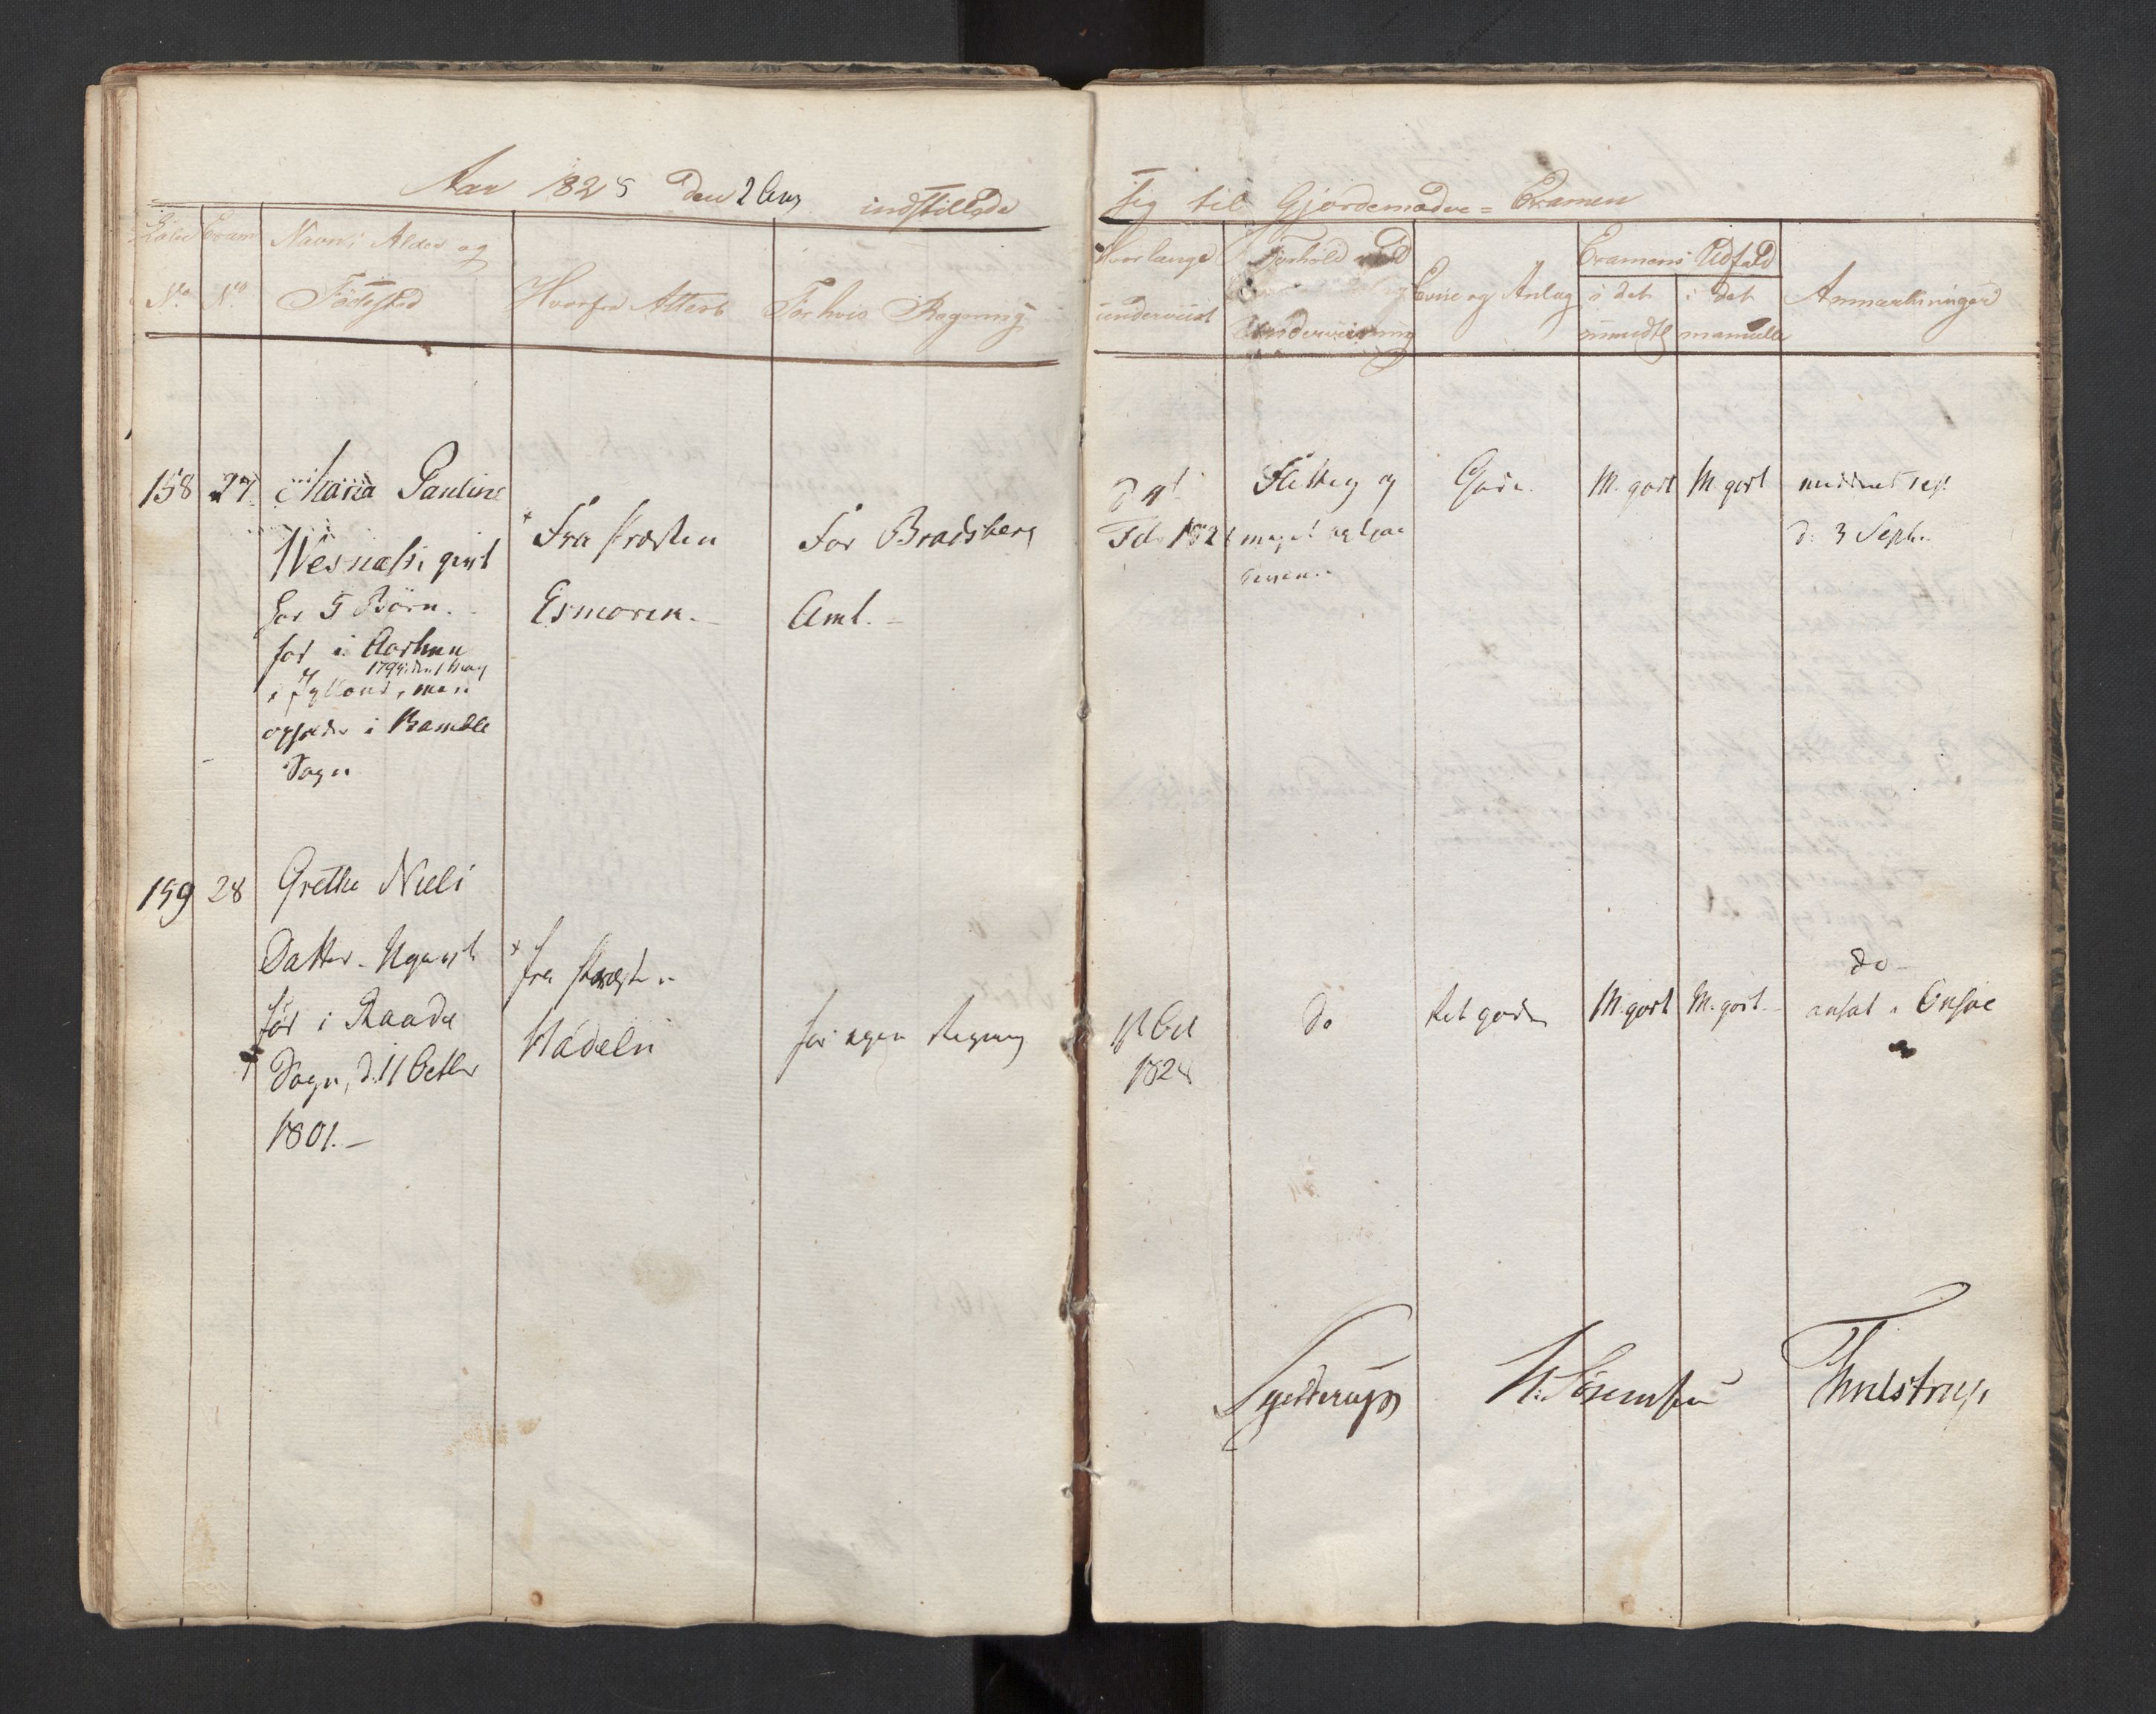 Aar 1825 den 2 Aug indstillede
sig til Gjordemoder=Examen
Exam
No No
Navn, Alder og
Fødested
Hvorfra Attest
For hvis Regning
Hvorlænge
underviist
Forhold ved
Underviisning
Evne og Anlæg
Examens Udfald
i det
mundtl
i det
manuelle
Anmærkninger
158 27 Maria Pauline
givt
har 5 Børn.
fød i Aarhuus
1794 den
i Jylland, men
opfødt i Bamble
Sogn
Fra Præsten
Esmorck.
For Bradsberg
Amt.
Feb 182
Flittig og
meget
Gode.
M. godt M. godt
d. 3 Septr.
159 28 Grethe Niels
Datter. Ugivt
fød i Raade
Sogn, d. 11 Octbr
1801.
fra Præsten
Wadeln
for egen Regning
Oct
1824
do
Ret gode
M. godt M. godt
do
ansat i Onsøe
H. Sørenssen
Thulstrup